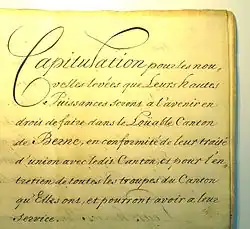 Capitulation pour les nou-
velles levées que Leurs hautes
Puissances seront à l'avenir en
droit de faire dans le Loüable Canton
de Berne, en conformité de leur traité
d'union avec ledit Canton, et pour l'en-
tretien de toutes les troupes du Canton
qu'Elles ont, et pourront avoir à leur
service.